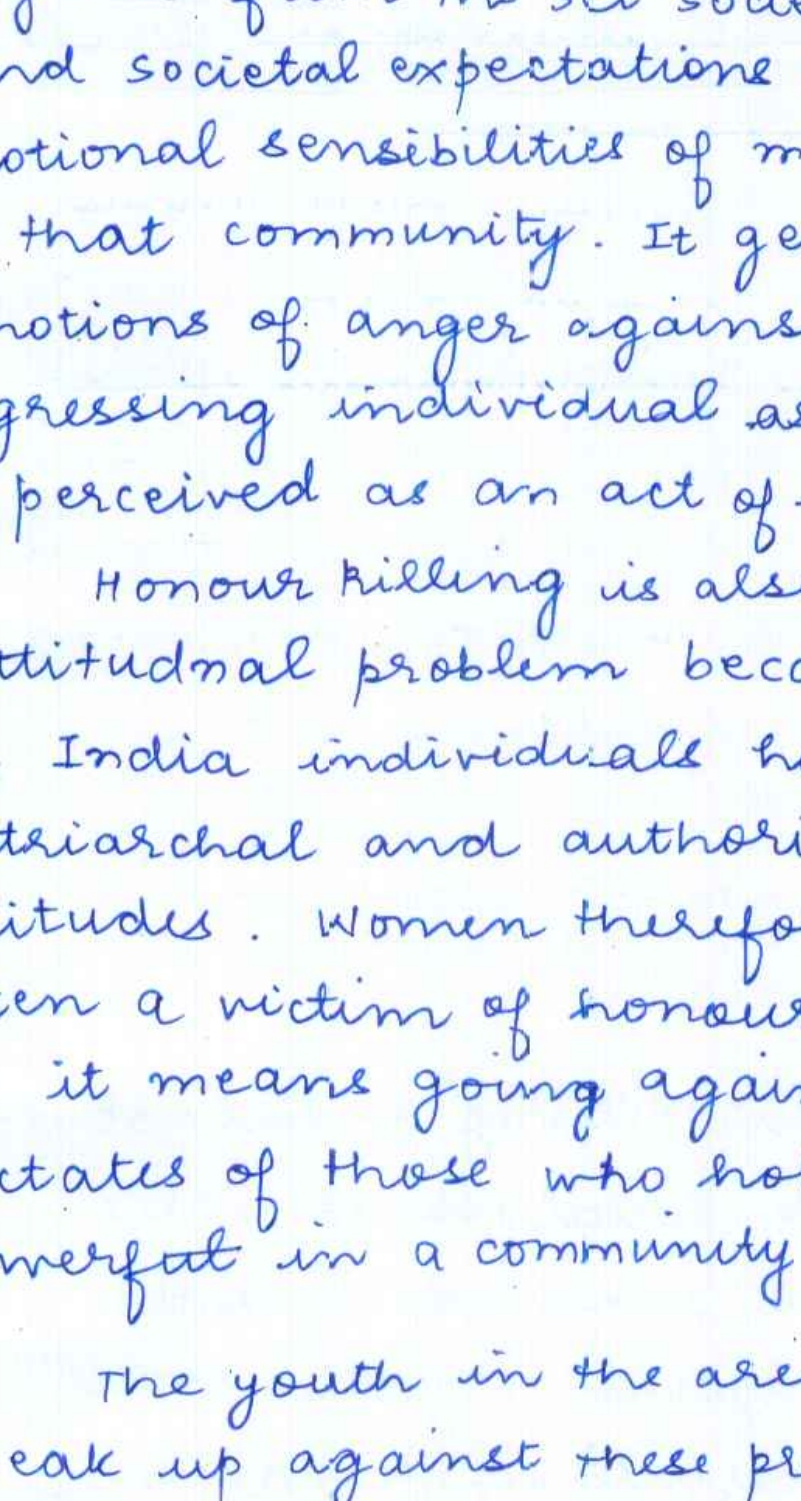 nd societal expectations
otional sensibilities of m
that community. It ge
notions of anger agains
gressing individual as
perceived as an act of
Honour killing is als
ttitudnal problem beca
India individuals h
triarchal and authori
itudes. Women therefo
en a victim of honour
it means going again
ctates of those who ho
werful in a community
The youth in the are
eak up against these pr